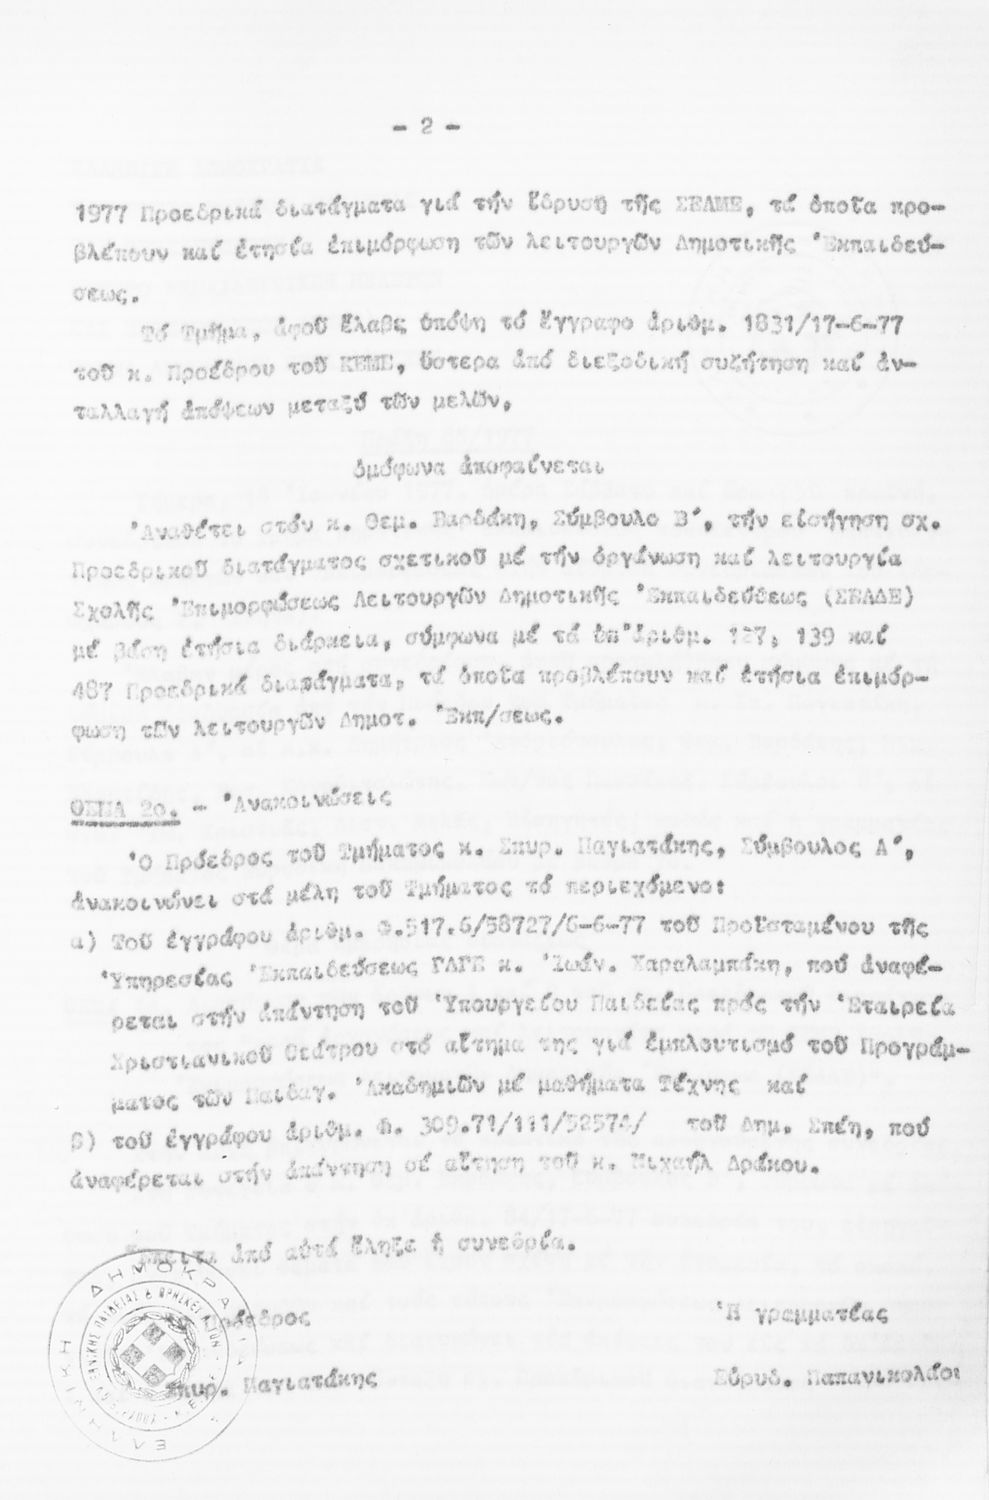 - 2 -
1977 Προεδρικά διατάγματα γιά τήν ἵδρυση τῆς ΣΕΛΜΕ, τά ὁποῖα προ-
βλέπουν καί ἐτησία ἐπιμόρφωση τῶν λειτουργῶν Δημοτικῆς Ἐκπαιδεύ-
σεως.
Τό Τμῆμα, ἀφοῦ ἔλαβε ὑπόψη τό ἔγγραφο ἀριθμ. 1831/17-6-77
τοῦ κ. Προέδρου τοῦ ΚΕΜΕ, ὕστερα ἀπό διεξοδική συζήτηση καί ἀν-
ταλλαγή ἀπόψεων μεταξύ τῶν μελῶν,
ὁμόφωνα ἀποφαίνεται
Ἀναθέτει στόν κ. Θεμ. Βαρδάκη, Σύμβουλο Β΄, τήν εἰσήγηση σχ.
Προεδρικοῦ διατάγματος σχετικοῦ μέ τήν ὀργάνωση καί λειτουργία
Σχολῆς Ἐπιμορφώσεως Λειτουργῶν Δημοτικῆς Ἐκπαιδεύσεως (ΣΕΛΔΕ)
μέ βάση ἐτήσια διάρκεια, σύμφωνα μέ τά ὑπ'ἀριθμ. 127, 139 καί
487 Προεδρικά διατάγματα, τά ὁποῖα προβλέπουν καί ἐτήσια ἐπιμόρ-
φωση τῶν λειτουργῶν Δημοτ. Ἐκπ/σεως.
ΘΕΜΑ 2ο. - Ἀνακοινώσεις
Ὁ Πρόεδρος τοῦ Τμήματος κ. Σπυρ. Παγιατάκης, Σύμβουλος Α΄,
ἀνακοινώνει στά μέλη τοῦ Τμήματος τό περιεχόμενο:
α) Τοῦ ἐγγράφου ἀριθμ. Φ.517.6/58727/6-6-77 τοῦ Προϊσταμένου τῆς
Ὑπηρεσίας Ἐκπαιδεύσεως ΓΔΓΕ κ. Ἰωάν. Χαραλαμπάκη, πού ἀναφέ-
ρεται στήν ἀπάντηση τοῦ Ὑπουργείου Παιδείας πρός τήν Ἑταιρεία
Χριστιανικοῦ Θεάτρου στό αἴτημα της γιά ἐμπλουτισμό τοῦ Προγράμ-
ματος τῶν Παιδαγ. Ἀκαδημιῶν μέ μαθήματα Τέχνης καί
β) τοῦ ἐγγράφου ἀριθμ. Φ. 309.71/111/52574/ τοῦ Δημ. Σπέη, πού
ἀναφέρεται στήν ἀπάντηση σέ αἴτηση τοῦ κ. Μιχαήλ Δράκου.
Ἔπειτα ἀπό αὐτά ἔληξε ἡ συνεδρία.
Πρόεδρος
Ἡ γραμματέας
Σπυρ. Παγιατάκης
Εὐρυδ. Παπανικολάου
ΕΛΛΗΝΙΚΗ ΔΗΜΟΚΡΑΤΙΑ